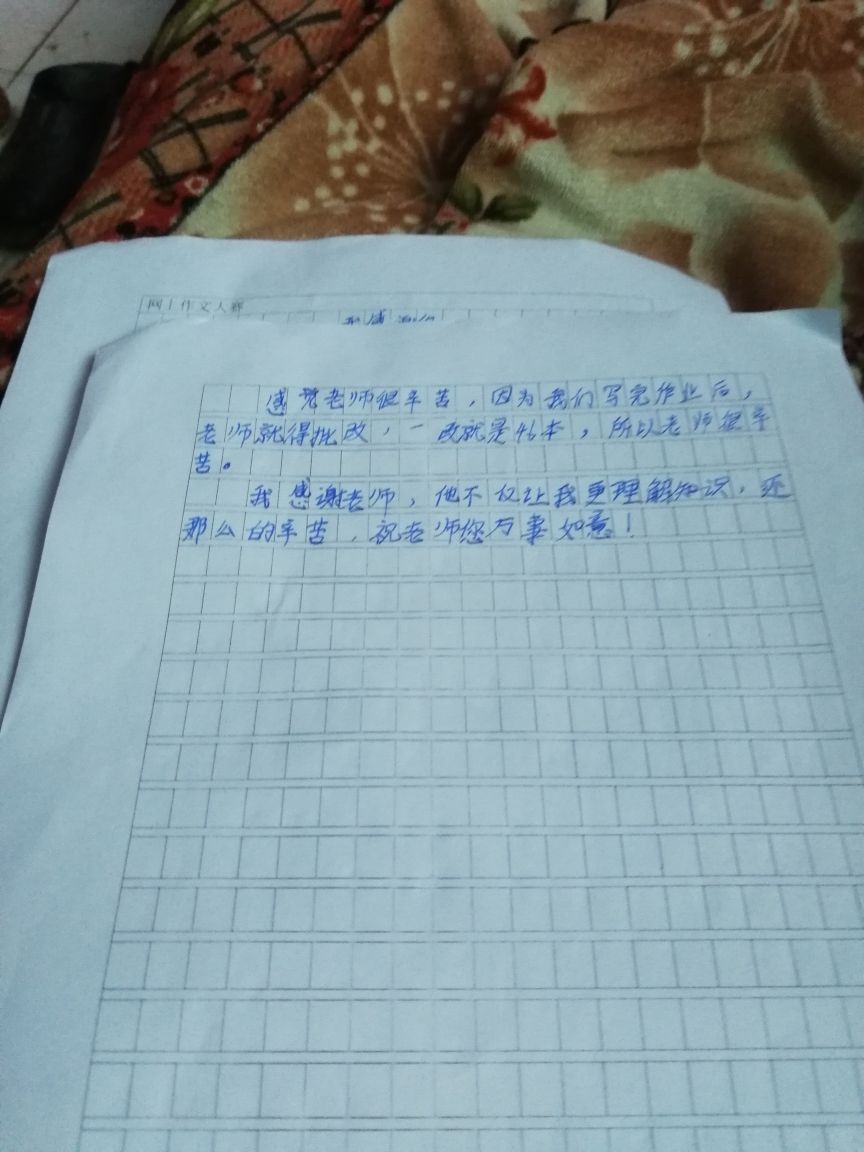 网上作文大赛
感觉老师很辛苦，因为我们写完作业后，
老师就得批改，一改就是46本，所以老师很辛
苦。
我感谢老师，他不仅让我更理解知识，还
那么的辛苦，祝老师您万事如意！